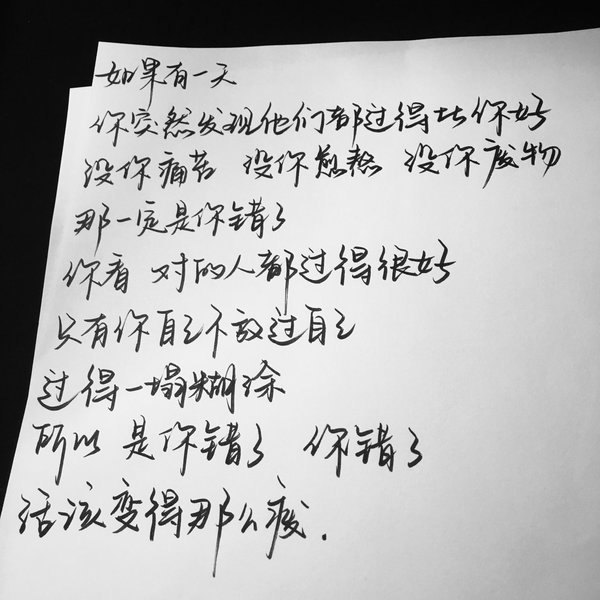 如果有一天
你突然发现他们都过得比你好
没你痛苦 没你煎熬 没你废物
那一定是你错了
你看 对的人都过得很好
只有你自己不放过自己
过得一塌糊涂
所以 是你错了 你错了
活该变得那么废.